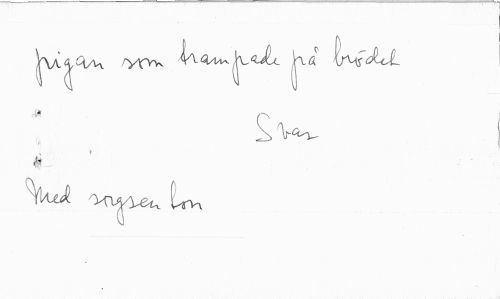 pigan som trampade på brödet
Svar
Med sorgsen ton